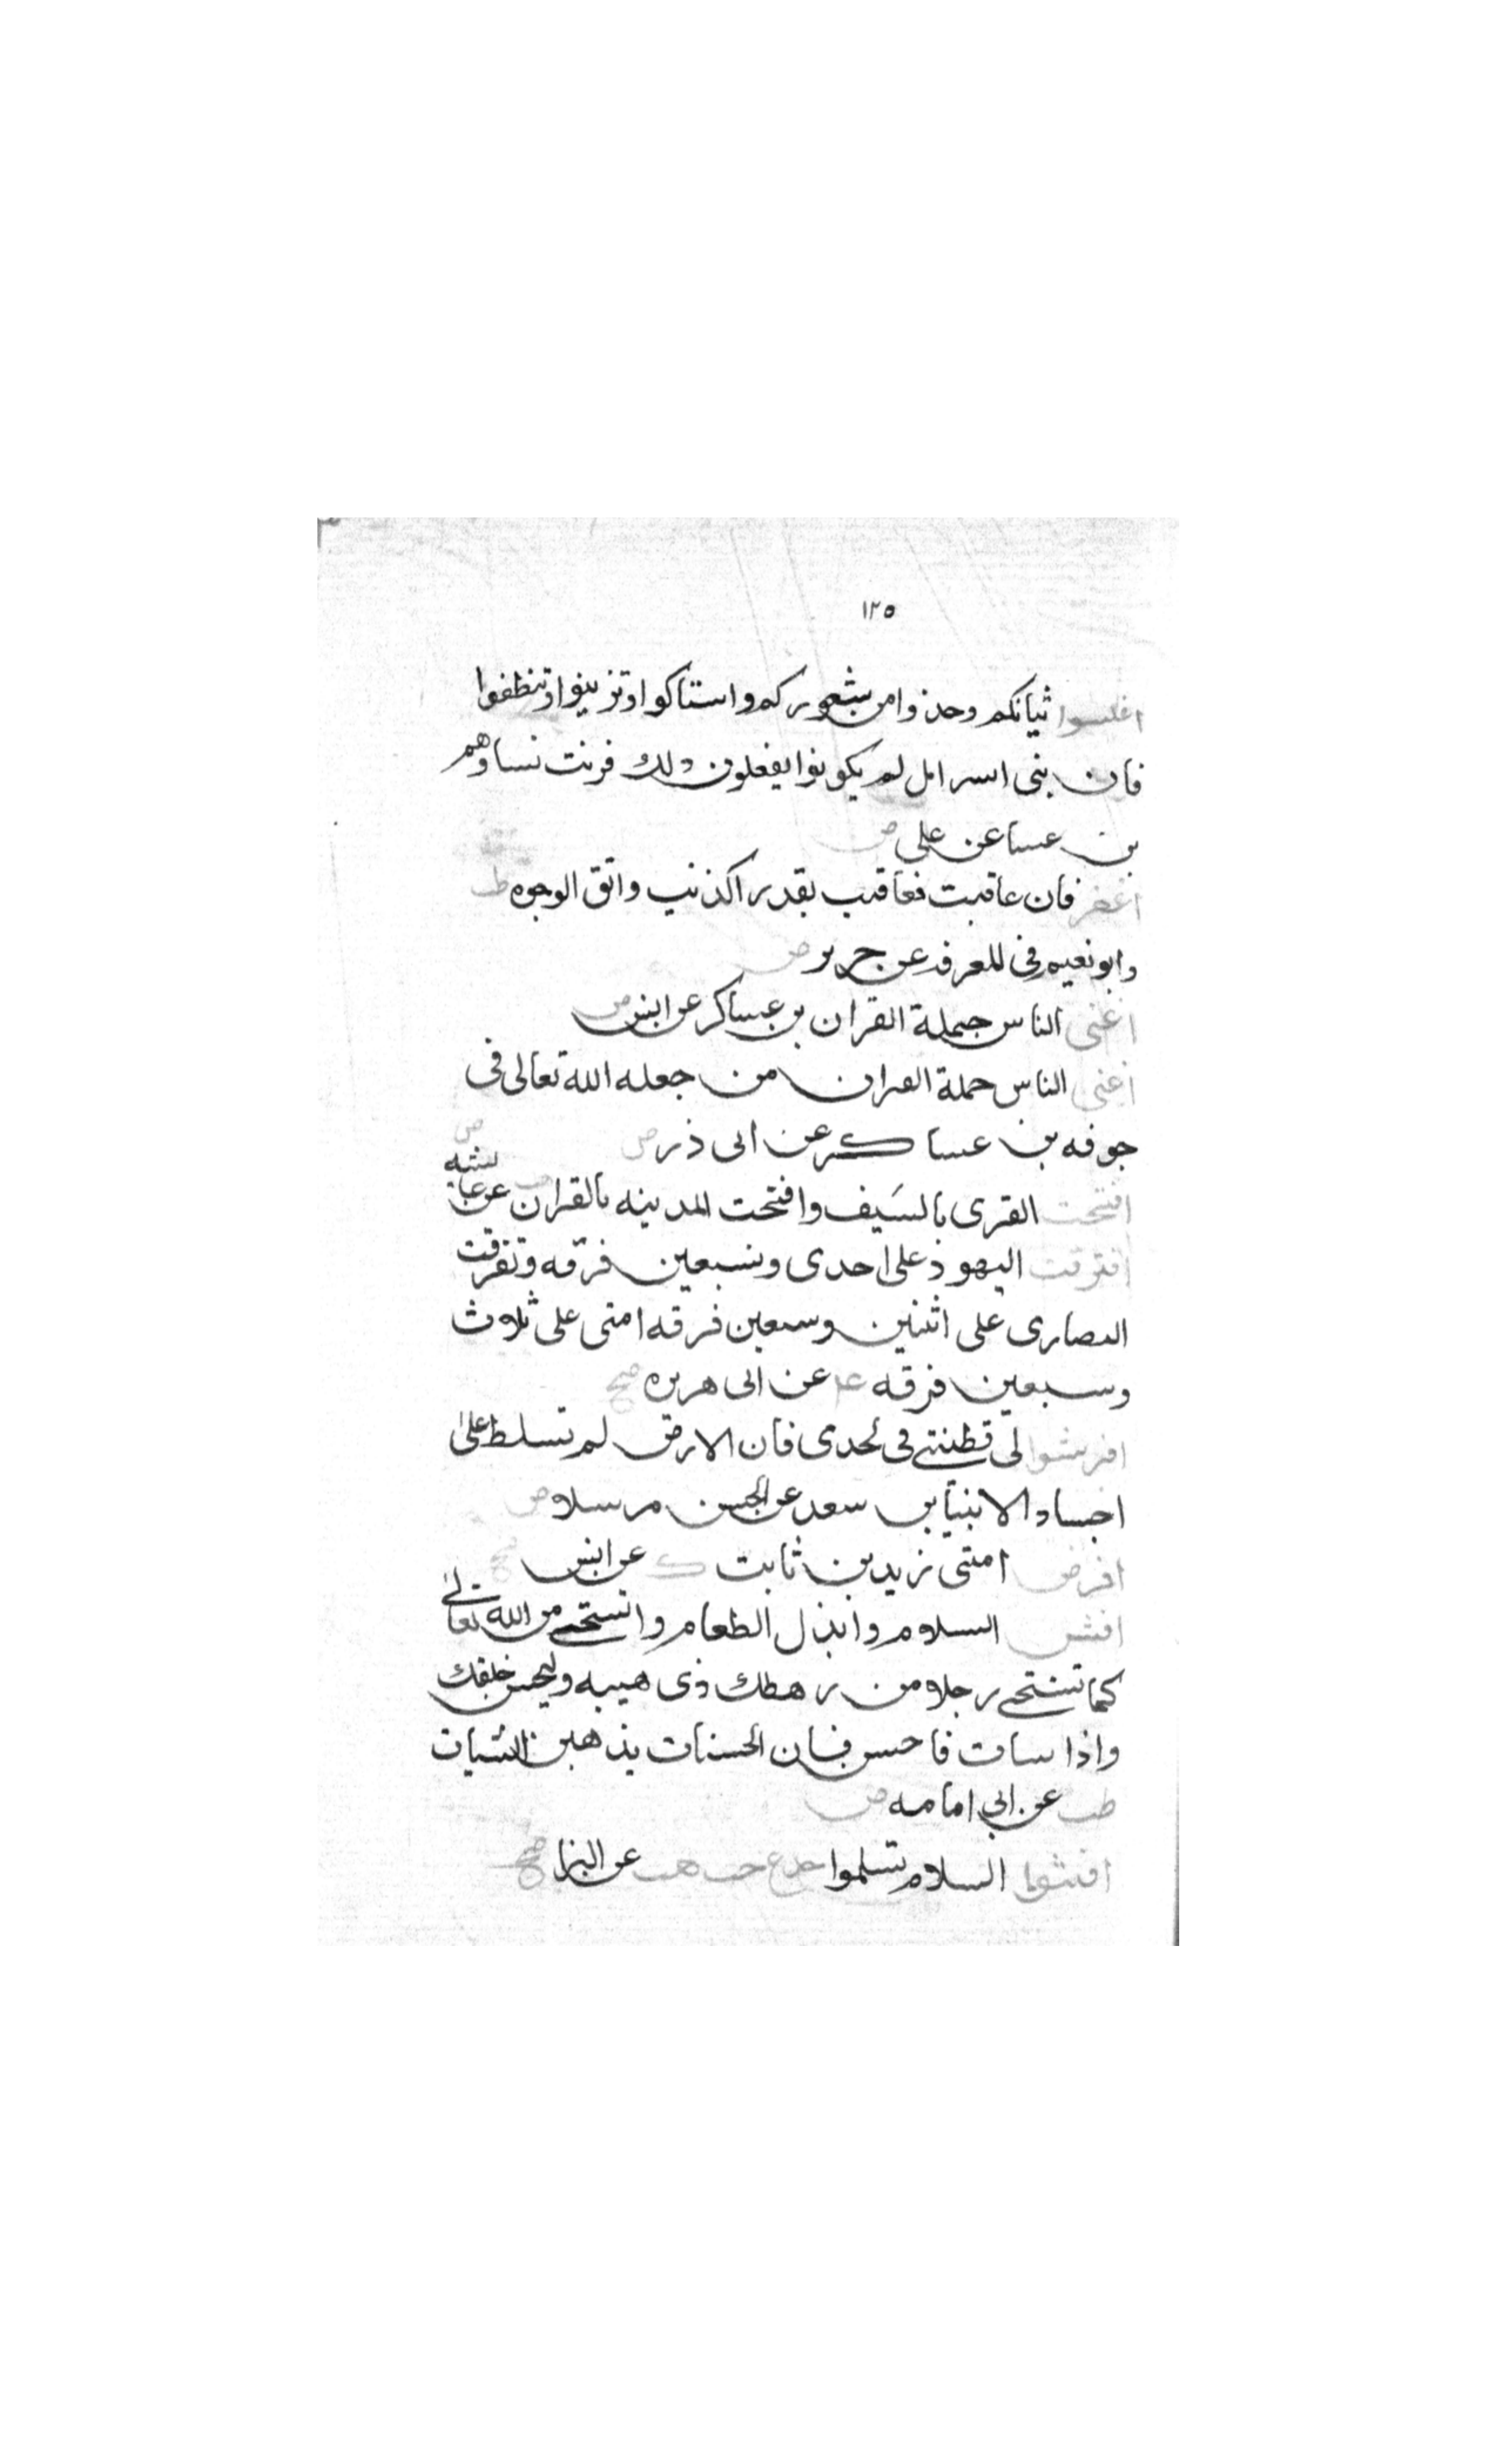 ١٢٥
اغلسوا ثيابكم وخذوا من شعوركم واستاكوا وتزينوا وتنظفوا
فان بنى اسرايل لم يكونوا يفعلون ذلك فزنت نساوهم
بن عسا عن على ض
اغفر فان عاقبت فعاقب بقدر اكذنب واتق الوجوه طب
وابو نعيم فى المعرفه عن جرير ض
اغنى الناس حملة القران بن عساكر عن انس ض
اغنى الناس حملة القران من جعله الله تعالى فى
جوفه بن عساكر عن ابى ذر ض
افتتحت القرى بالسَيف وافتتحت المدينه بالقران هب عن عايشه ض
افترقت اليهود على احدى وسبعين فرقه وتفرقت
النصارى على اثنين وسبعين فرقه امتى على ثلاث
وسبعين فرقه عد عن ابى هريره صح
افرشوا لى قطيفتى فى لحدى فان الارض لم تسلط على
اجساد الانبيا بن سعد عن الحسن مرسلا ض
افرض امتى زيد بن ثابت ك عن انس صح
افش السلام وابذل الطعام واستحى من الله تعالى
كما تستحى رجلا من رهطك ذى هيبه وليحسن خلقك
واذا سات فاحسن فان الحسنات يذهبن السيات
طب عن ابي امامه ض
افشوا السلام تسلموا خد ع حب هب عن البرا صح